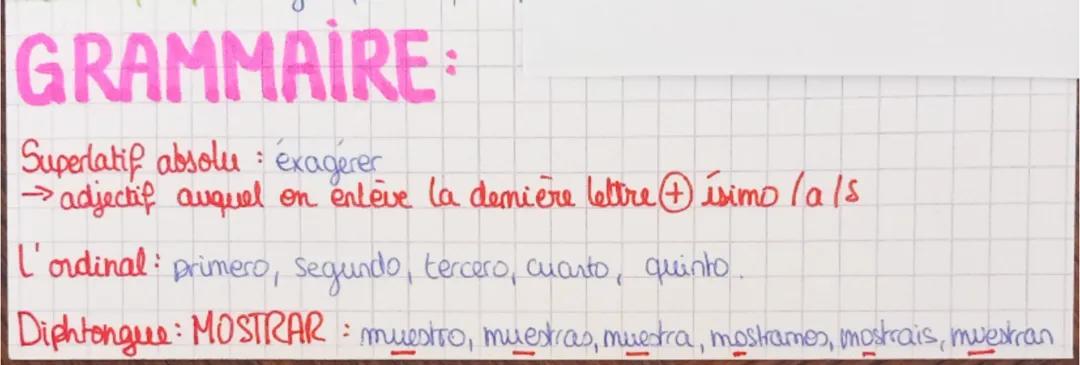 GRAMMAIRE:
Superlatif absolu : éxagérer
→ adjectif auquel on enlève la dernière lettre + ísimo /a/s
L'ordinal : primero, segundo, tercero, cuarto, quinto.
Diphtongue : MOSTRAR : muestro, muestras, muestra, mostramos, mostrais, muestran